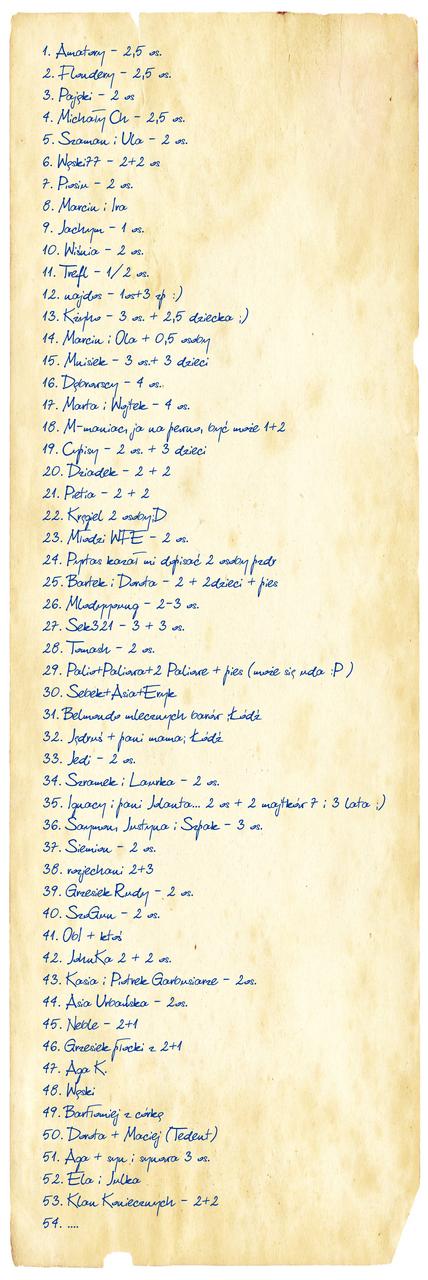 1. Amatory - 2,5 os.
2. Floudery - 2,5 os.
3. Pająki - 2 os
4. Michały Ch - 2,5 os.
5. Szaman i Ula - 2 os.
6. Węski77 - 2+2 os
7. Piosiu - 2 os.
8. Marcin i Ira
9. Jachym - 1 os.
10. Wiśnia - 2 os.
11. Trefl - 1/2 os.
12. najdos - 1os+3 zp :)
13. Kzyho - 3 os. + 2,5 dziecka ;)
14. Marcin i Ola + 0,5 osoby
15. Muisiek - 3 os.+ 3 dzieci
16. Dąbrowscy - 4 os.
17. Marta i Wojtek - 4 os.
18. M-maniac, ja na pewno, być może 1+2
19. Cypisy - 2 os. + 3 dzieci
20. Dziadek - 2 + 2
21. Pietia - 2 + 2
22. Kręgiel 2 osoby;D
23. Młodzi WFE - 2 os.
24. Pyrtas kazał mi dopisać 2 osoby pzdr
25. Bartek i Dorota - 2 + 2dzieci + pies
26. Mlodyyoung - 2-3 os.
27. Sek321 - 3 + 3 os.
28. Tomash - 2 os.
29. Palio+Paliora+2 Paliore + pies (może się uda :P )
30. Sebek+Asia+Eryk
31. Belmondo mlecznych barów ;Łódź
32. Jędruś + pani mama; Łódź
33. Jedi - 2 os.
34. Szramek i Laurka - 2 os.
35. Ignacy i pani Jolanta... 2 os + 2 majtków 7 i 3 lata ;)
36. Saymon, Justyna i Szpak - 3 os.
37. Siemion - 2 os.
38. rozjechani 2+3
39. Grzesiek Rudy - 2 os.
40. SzoGun - 2 os.
41. Obl + ktoś
42. JohnKa 2 + 2 os.
43. Kasia i Piotrek Garbusiarze - 2os.
44. Asia Urbańska - 2os.
45. Neble - 2+1
46. Grzesiek płocki z 2+1
47. Aga K.
48. Węski
49. Bartłomiej z córką
50. Dorota + Maciej (Tedent)
51. Aga + syn i synowa 3 os.
52. Ela i Julka
53. Klan Koniecznych - 2+2
54. ....